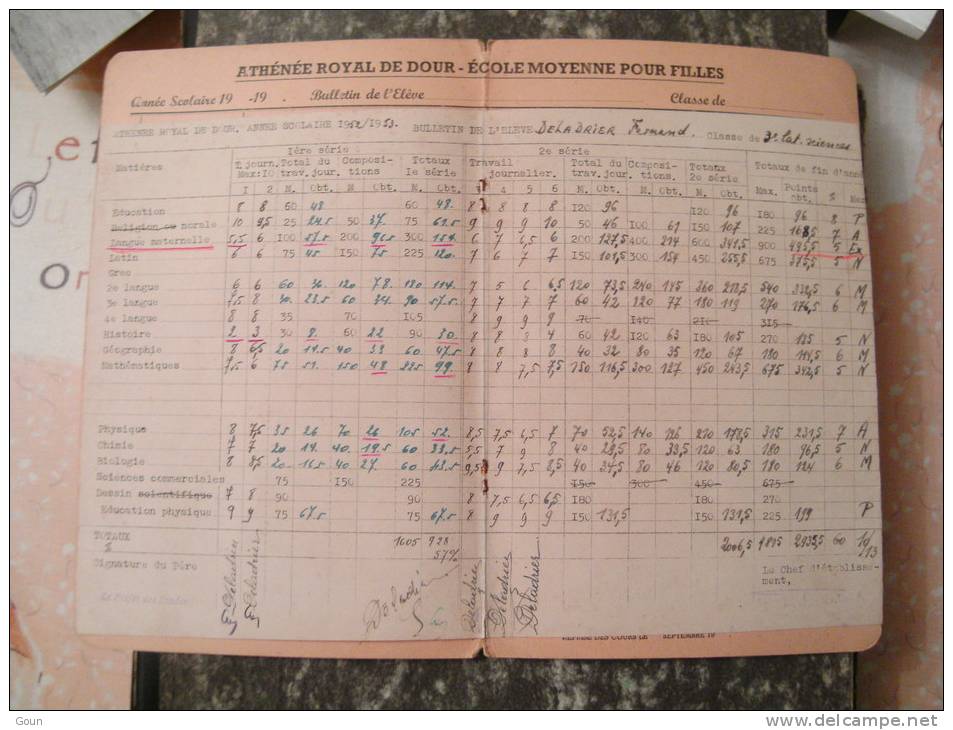 ATHÉNÉE ROYAL DE DOUR - ÉCOLE MOYENNE POUR FILLES
Année Scolaire 19 -19 . Bulletin de l'Elève Classe de
ATHENEE ROYAL DE DOUR. ANNEE SCOLAIRE 1952/1953. BULLETIN DE L'ELEVE DELADRIER Fernand. Classe de 3e Lat. Sciences
Ière série 2e série
Matières T journ. Total du Composi- Totaux Travail Total du Composi- Totaux Totaux de fin d'anné
Max:IO trav.jour. tions Ie série journalier. trav.jour. tions. 2e série Points
I 2 M. Obt. M. Obt. M. Obt. 4 5 6 M. Obt. M. Obt. M. Obt. Max. obt. %
Education 8 8 60 48 60 48. 8 8 8 8 I20 96 I20 96 I80 96 8 P
Religion ou morale 10 9,5 25 24.5 50 37. 75 61.5 9 9 9 10 50 46 100 61 I50 107 225 168,5 7 A
Langue maternelle 5,5 6 I00 57.5 200 96.5 300 154. 6 7 6,5 6 200 127,5 400 214 600 341,5 900 495,5 5 Ex
Latin 6 6 75 45 I50 75 225 120. 7 6 7 7 I50 101,5 300 154 450 255,5 675 375,5 5 N
Grec
2e langue 6 6 60 36. 120 78. 180 114. 7 5 6 6,5 120 73,5 240 145 360 218,5 540 332,5 6 M
3e langue 7,5 8 30. 23.5 60 34. 90 57.5. 7 7 7 7 60 42 120 77 180 119 270 176,5 6 M
4e langue 8 8 35 70 I05 8 9 9 9 70 I40 2I0 3I5
Histoire 2 3 30 8. 60 22 90 30. 8 8 3 4 60 42 I20 63 I80 105 270 135 5 N
Géographie 8 6,5 20 14.5 40 33 60 47.5 8 8 8 8 40 32 80 35 120 67 180 114,5 6 M
Mathématiques 7,5 6 75 51. 150 48 225 99. 8 8 7,5 7,5 150 116,5 300 127 450 243,5 675 342,5 5 N
Physique 8 7,5 35 26 70 26 105 52. 8,5 7,5 6,5 7 70 52,5 140 126 210 178,5 315 231,5 7 A
Chimie 7 7 20 14. 40 19.5 60 33.5 5,5 7 9 8 40 29,5 80 33,5 120 63 180 96,5 5 N
Biologie 8 8,5 20. 16.5 40 27. 60 43.5 9,5 9 7,5 8,5 40 34,5 80 46 120 80,5 180 124 6 M
Sciences commerciales 75 I50 225 I50 300 450 675
Dessin scientifique 7 8 90 90 8 7,5 6,5 6,5 I80 I80 270
Education physique 9 9 75 67.5 75 67.5 8 9 9 9 I50 131,5 I50 131,5 225 199 P
TOTAUX 1605 928 2006,5 4895 2935,5 60 10/13
% 57%
Signature du Père Le Chef d'établisse-
ment,
Deladrier Deladrier Deladrier Deladrier Deladrier
Le Préfet des Etudes
REPRISE DES COURS LE SEPTEMBRE 19
Goun
www.delcampe.net